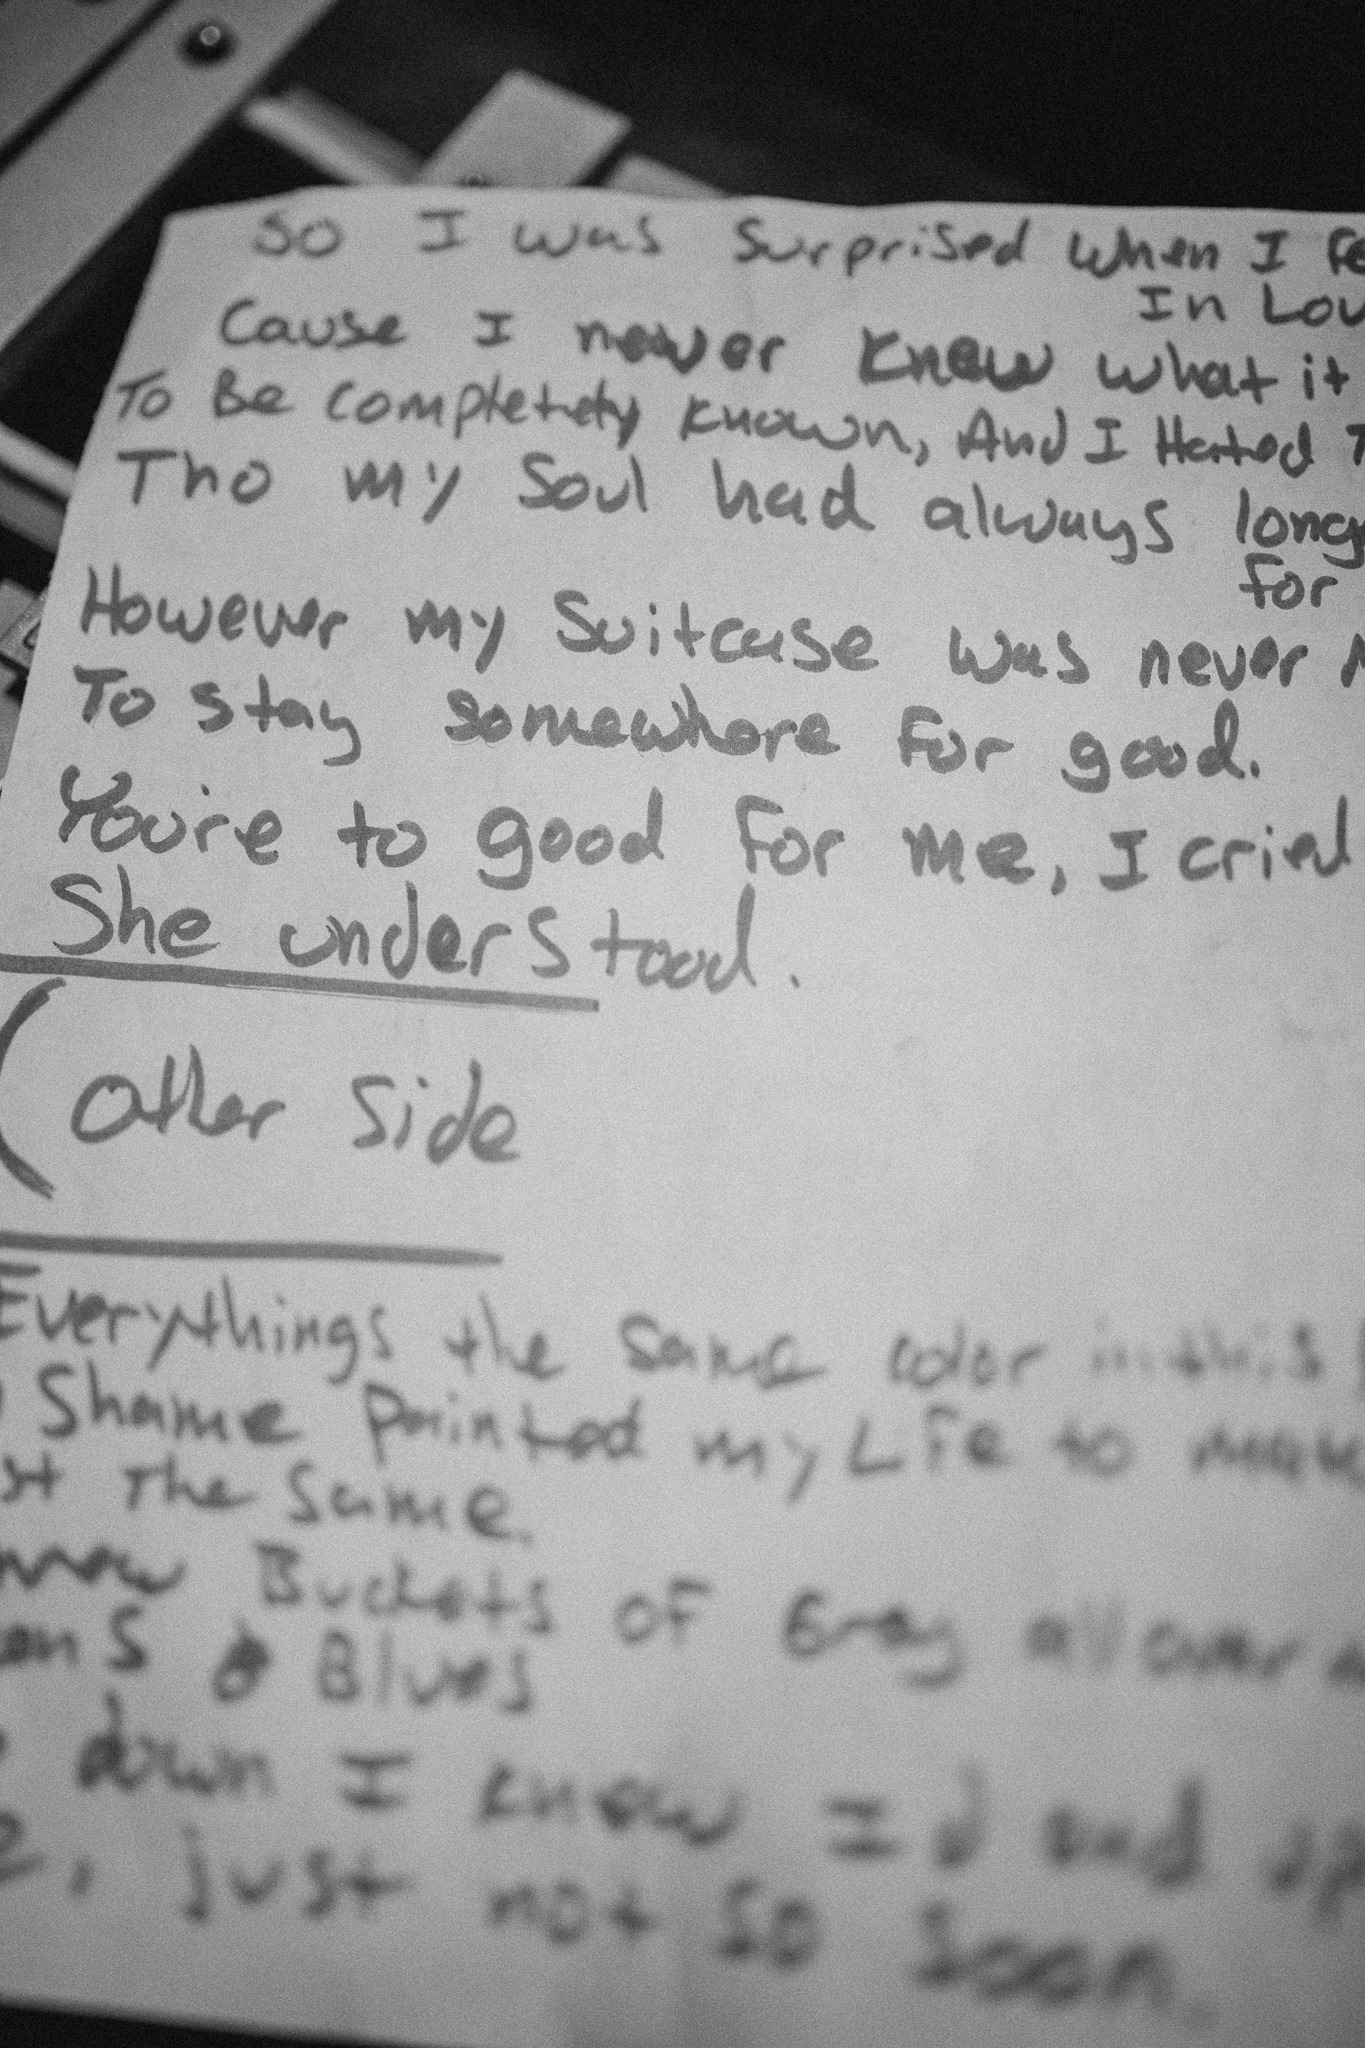 So I was Surprised when I
In
Cause I never knew what it
To Be completely known, And I Hated
Tho my Soul had always
for
However my Suitcase was never
To stay somewhere for good.
You're to good for me, I cried
She understood.
(other side
Everythings the same color in this
Shame Painted my Life to
The Same.
Buckets of Gray all over
& Blues
down I know I'd end up
, just not so soon.